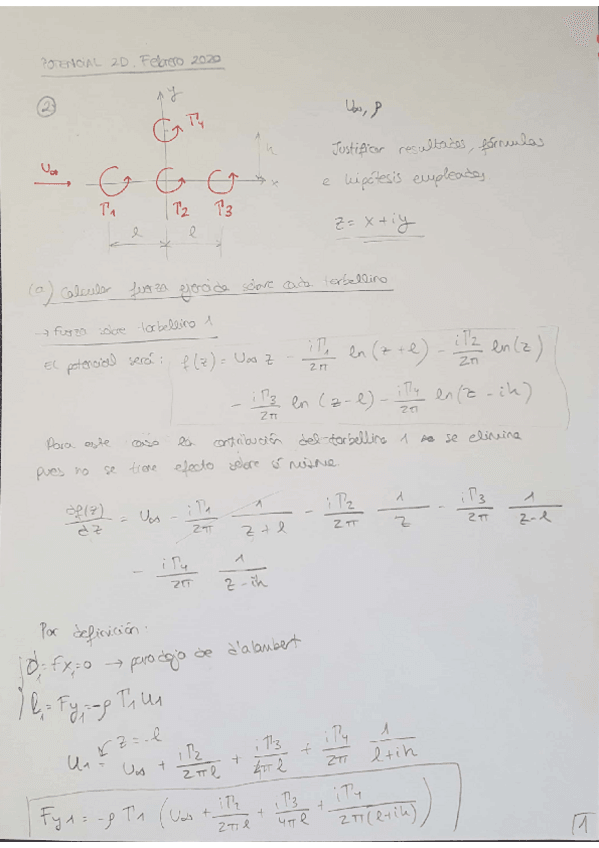 POTENCIAL 2D. Febrero 2020
② y Γ4 U∞, ρ
h Justificar resultados, fórmulas
U∞ x e hipótesis empleadas
Γ1 Γ2 Γ3 z = x + iy
l l
(a) Calcular fuerza ejercida sobre cada torbellino
→ Fuerza sobre torbellino 1
El potencial será: f(z) = U∞ z - iΓ1/2π ln(z+l) - iΓ2/2π ln(z)
- iΓ3/2π ln(z-l) - iΓ4/2π ln(z-ih)
Para este caso la contribución del torbellino 1 se elimina
pues no se tiene efecto sobre sí mismo.
df(z)/dz = U∞ - iΓ1/2π 1/z+l - iΓ2/2π 1/z - iΓ3/2π 1/z-l
- iΓ4/2π 1/z-ih
Por definición:
d1 = Fx1 = 0 → paradoja de d'alambert
l1 = Fy1 = -ρ Γ1 U1
z=-l
U1 = U∞ + iΓ2/2πl + iΓ3/4πl + iΓ4/2π 1/l+ih
Fy1 = -ρ Γ1 (U∞ + iΓ2/2πl + iΓ3/4πl + iΓ4/2π(l+ih))
1